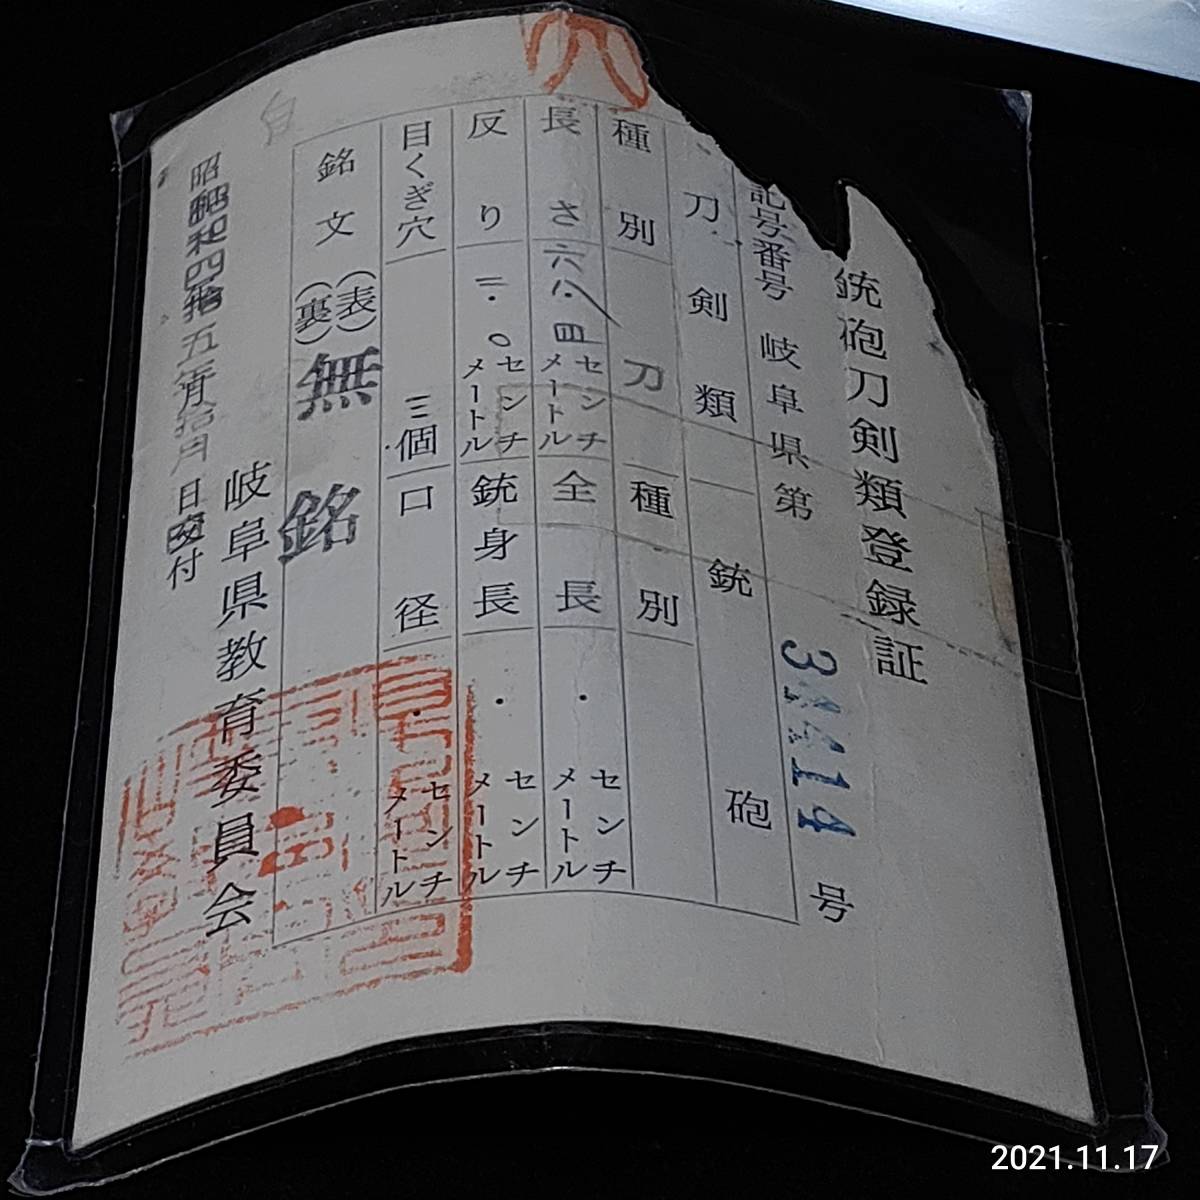 銃砲刀剣類登録証
記号番号 岐阜県第 号
刀剣類 銃砲
種別 刀 種別
長さ 六八・四 センチメートル 全長 ・ センチメートル
反り 二・〇 センチメートル 銃身長 ・ センチメートル
目くぎ穴 三個 口径 ・ センチメートル
銘文 (表)(裏) 無銘
昭和四拾五年 月 日交付
岐阜県教育委員会
2021.11.17